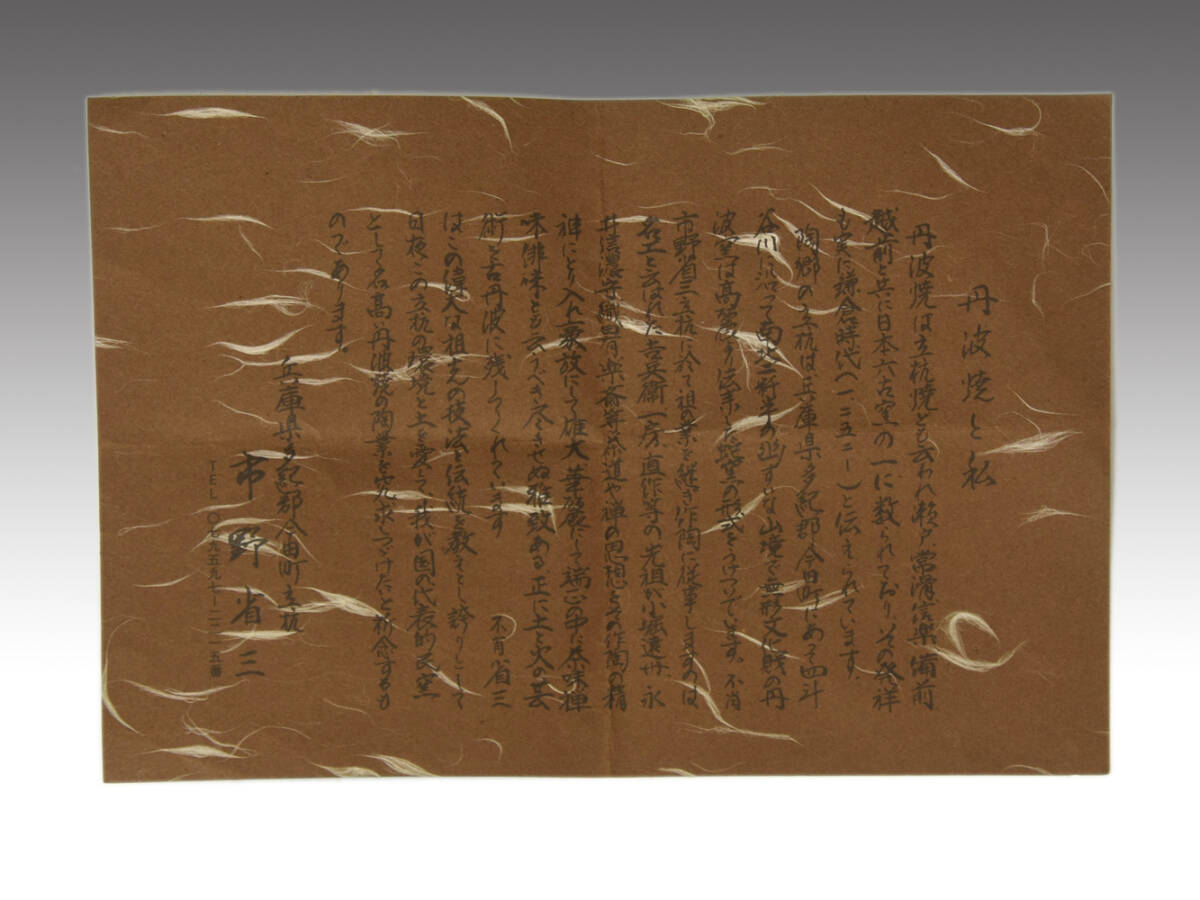 丹波焼と私
丹波焼は立杭焼とも云われ瀬戸常滑信楽備前
越前と共に日本六古窯の一に数られておりその発祥
も実に鎌倉時代(一二五二ー)と伝えられています。
陶郷の立杭は兵庫県多紀郡今田町にあつて四斗
谷川に沿って南北二粁半の山境で無形文化財の丹
波窯は高麗より伝来した蛇窯の形式をうけついでいます。不肖
市野省三立杭に於て祖の業を継ぎ作陶に従事しますのは
名工と云はれた吉兵衛一房直作等の先祖が小堀遠州、永
井信濃守織田有楽斎等茶道や禅の思想をその作陶の精
神にとり入れ豪放にして雄大華麗にして端正の中に茶味禅
味俳味とも云うべき尽きせぬ雅致ある正に土と火の芸
術を古丹波に残してくれています 不肖省三
はこの偉大な祖先の技法を伝統を教えとし誇りとして
日夜この立杭の環境と土を愛して我が国の代表的古窯
として名高い丹波焼の陶業を究求つづけたいと祈念するも
のであります。
兵庫県多紀郡今田町立杭
市野省三
TEL〇七九五九七ー二二一五番